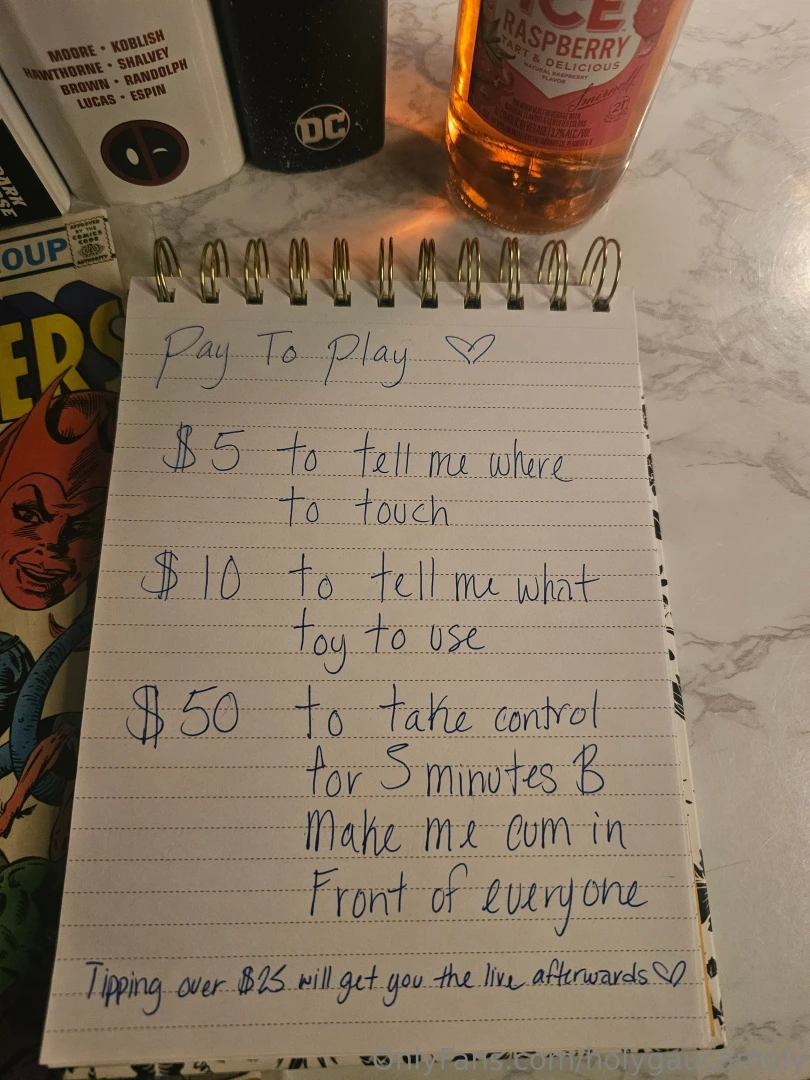 MOORE • KOBLISH
HAWTHORNE • SHALVEY
BROWN • RANDOLPH
LUCAS • ESPIN
DC
ICE
RASPBERRY
TART & DELICIOUS
NATURAL RASPBERRY
FLAVOR
Smirnoff
DARK
HORSE
OUP
APPROVED
BY THE
COMICS
CODE
AUTHORITY
ERS
Pay To Play
$5 to tell me where
to touch
$10 to tell me what
toy to use
$50 to take control
for 5 minutes B
Make me cum in
Front of everyone
Tipping over $25 will get you the live afterwards